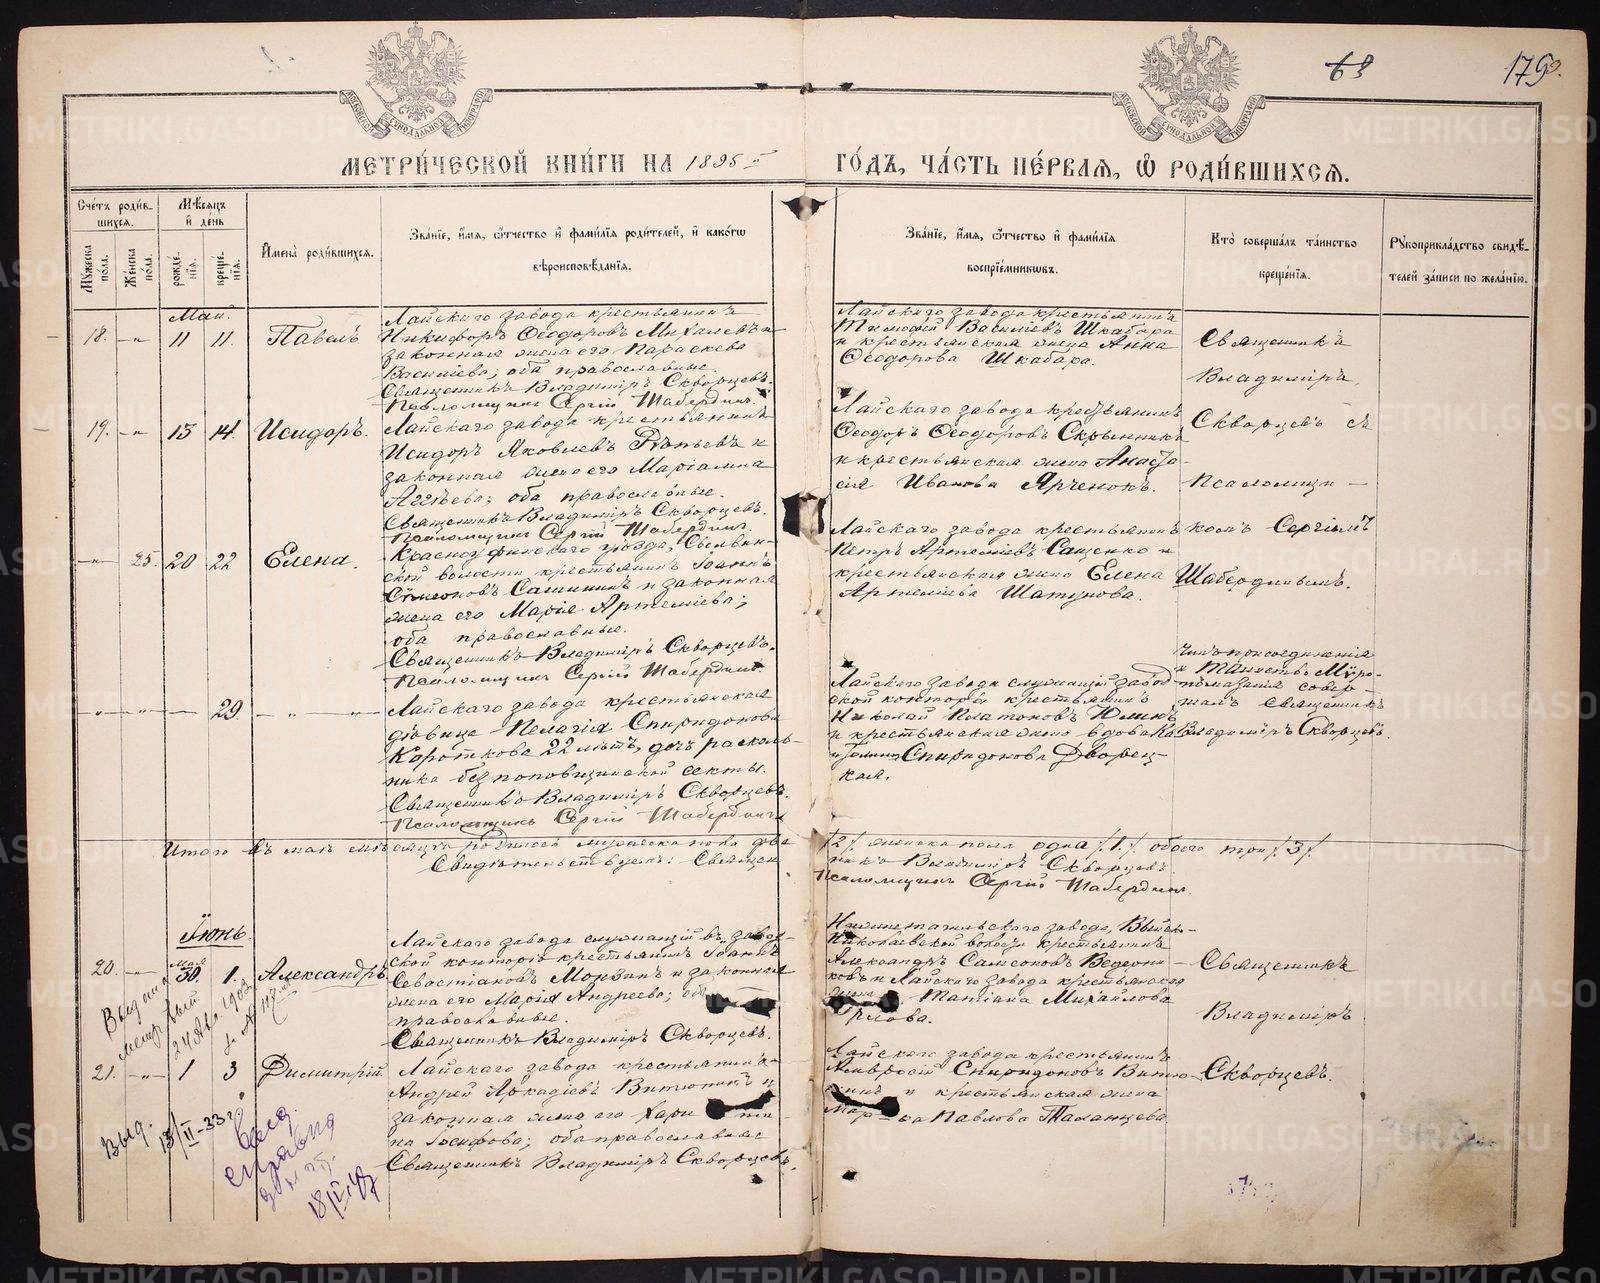 63
179
МОСКОВСКОЙ СУНОДАЛЬНОЙ ТИПОГРАФІИ
МОСКОВСКОЙ СУНОДАЛЬНОЙ ТИПОГРАФІИ
МЕТРИ́ЧЕСКОЙ КНИ́ГИ НА 1895 й ГО́ДЪ, ЧА́СТЬ ПЕ́РВАѦ, Ѽ РОДИ́ВШИХСѦ.
Сче́тъ роди́в-
шихсѧ.
Мѣ́сѧцъ
и҆ де́нь
Мꙋ́жеска по́ла.
Же́нска по́ла.
рожде́нїѧ.
креще́нїѧ.
И҆мена̀ роди́вшихсѧ.
Зва́нїе, и҆́мѧ, ѻ҆́тчество и҆ фами́лїѧ роди́телей, и҆ како́гѡ
вѣроисповѣ́данїѧ.
Зва́нїе, и҆́мѧ, ѻ҆́тчество и҆ фами́лїѧ
воспрїе́мникѡвъ.
Кто̀ соверша́лъ та́инство
креще́нїѧ.
Рꙋкоприкла́дство свидѣ́-
телей за́писи по жела́нїю.
Май.
18. -„- 11 11. Павелъ
Лайскаго завода крестьянинъ
Никифоръ Ѳеодоровъ Михалевъ и
законная жена его Параскева
Василіева; оба православные.
Священникъ Владиміръ Скворцевъ.
Псаломщикъ Сергій Шабердинъ.
Лайскаго завода крестьянинъ
Тимофей Василіевъ Шкабара
и крестьянская жена Анна
Ѳеодорова Шкабара.
Священникъ
Владиміръ
19. -„- 13 14. Исидоръ.
Лайскаго завода крестьянинъ
Исидоръ Яковлевъ Рѣпьевъ и
законная жена его Маріамна
Аггѣева; оба православные.
Священникъ Владиміръ Скворцевъ.
Псаломщикъ Сергій Шабердинъ.
Лайскаго завода крестьянинъ
Ѳеодоръ Ѳеодоровъ Скрынникъ
и крестьянская жена Анаста-
сія Иванова Ярченокъ.
Скворцевъ съ
Псаломщи-
комъ Сергіемъ
Шабердинымъ.
-„- 25. 20 22 Елена.
Красноуфимскаго уѣзда,
ской волости крестьянинъ Іоаннъ
Сѵмеоновъ Сашинъ и законная
жена его Марія Артеміева;
оба православные.
Священникъ Владиміръ Скворцевъ.
Псаломщикъ Сергій Шабердинъ
Лайскаго завода крестьянинъ
Петръ Артеміевъ Саценко и
крестьянская жена Елена
Артеміева Шатунова.
„ -„- - 29. -„- „-
Лайскаго завода крестьянская
дѣвица Пелагія Спиридонова
Короткова 22 лѣтъ, дочь расколь-
ника безпоповщинской секты.
Священникъ Владиміръ Скворцевъ.
Псаломщикъ Сергій Шабердинъ
Лайскаго завода служащій завод-
ской конторы крестьянинъ
Николай Платоновъ Юлинъ
и крестьянская жена вдова Ка-
Спиридонова Дворец-
кая.
Чинъ присоединенія
и Таинство Мѵро-
помазанія совер-
шалъ Священникъ
Владиміръ Скворцевъ.
Итого въ маѣ мѣсяцѣ родилось мужеска пола два /2/ женска пола одна /1/. обоего три /3/.
Свидѣтельствуемъ: Священникъ Владиміръ Скворцевъ
Псаломщикъ Сергій Шабердинъ.
Іюнь.
20. -„- Мая 30. 1. Александръ
Лайскаго завода служащій въ завод-
ской конторѣ крестьянинъ Іоаннъ
Севастіановъ Морвинъ и законная
жена его Марія Андреева; оба
православные.
Священникъ Владиміръ Скворцевъ.
Нижнетагильскаго завода, Выйско-
Николаевской волости крестьянинъ
Александръ Самсоновъ Ведерни-
ковъ и Лайскаго завода крестьянская
жена Татіана Михайлова
Орлова.
Священникъ
Владиміръ
Скворцевъ.
Выдана
метр. вып.
24 Авг. 1902
г. № 117
21. -„- 1 3 Димитрій
Лайскаго завода крестьянинъ
Андрей Аркадіевъ Витюнинъ и
законная жена его Хари
на Іосифова; оба православные
Священникъ Владиміръ Скворцевъ.
Лайскаго завода крестьянинъ
Амвросій Спиридоновъ Витю-
нинъ и крестьянская жена
Павлова Таланцева.
Выд. 13/II-33 г.
справка
18/IV